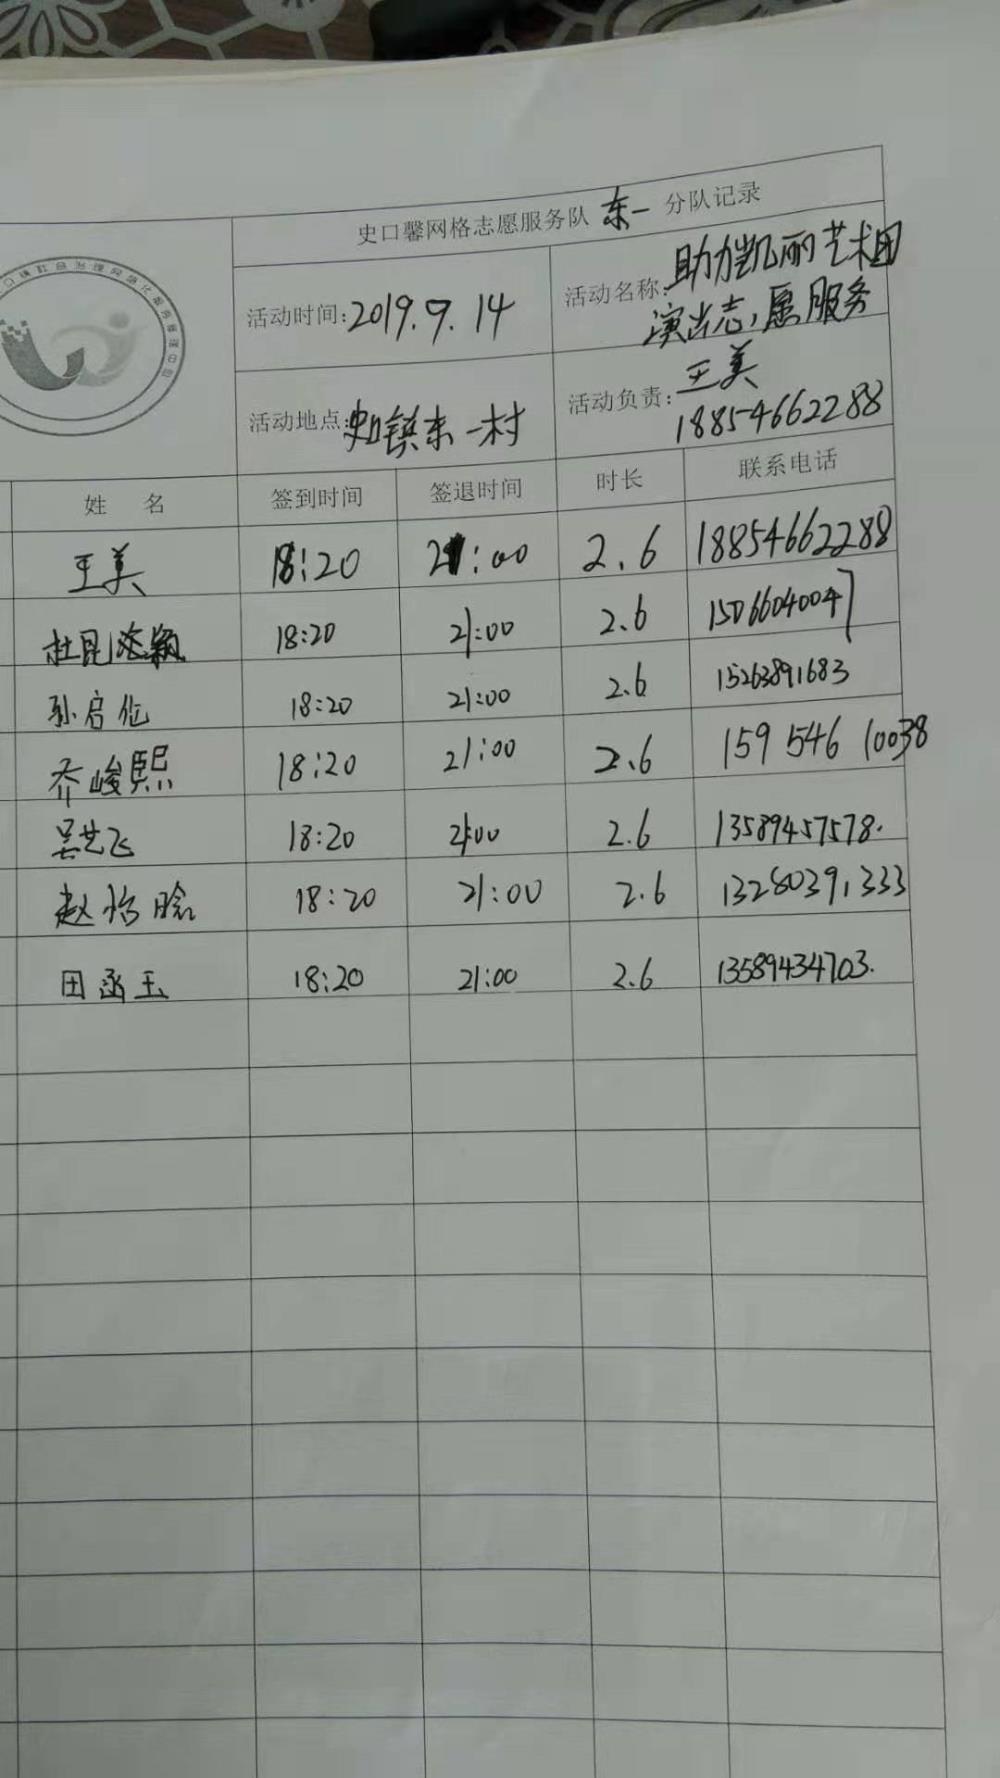 史口馨网格志愿服务队 东一 分队记录
活动时间:2019.9.14
活动名称:助力凯丽艺术团
演出志愿服务
活动地点:史口镇东一村
活动负责:王美
18854662288
姓 名 签到时间 签退时间 时长 联系电话
王美 18:20 21:00 2.6 18854662288
杜昆 颖 18:20 21:00 2.6 15066040047
孙启伦 18:20 21:00 2.6 15263891683
乔峻熙 18:20 21:00 2.6 159 546 10038
吴艺飞 18:20 21:00 2.6 13589457578.
赵怡晗 18:20 21:00 2.6 13280391333
田函玉 18:20 21:00 2.6 13589434703.